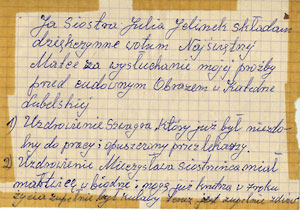 Ja siostra Julia Jelinek składam
dziękczynne wotum Najświętrzej
Matce za wysłuchanie mojej prożby
przed cudownym Obrazem w Katedrze
Lubelskiej
1) Uzdrowienie Szwagra który już był niezdol
ny do pracy i opuszczony przez lekarzy.
2) Uzdrowienie Mieczysława siostrzeńca miał
w biodrze i nogą już w 7 roku
życia zupełnie był teraz jest zupełnie zdrów